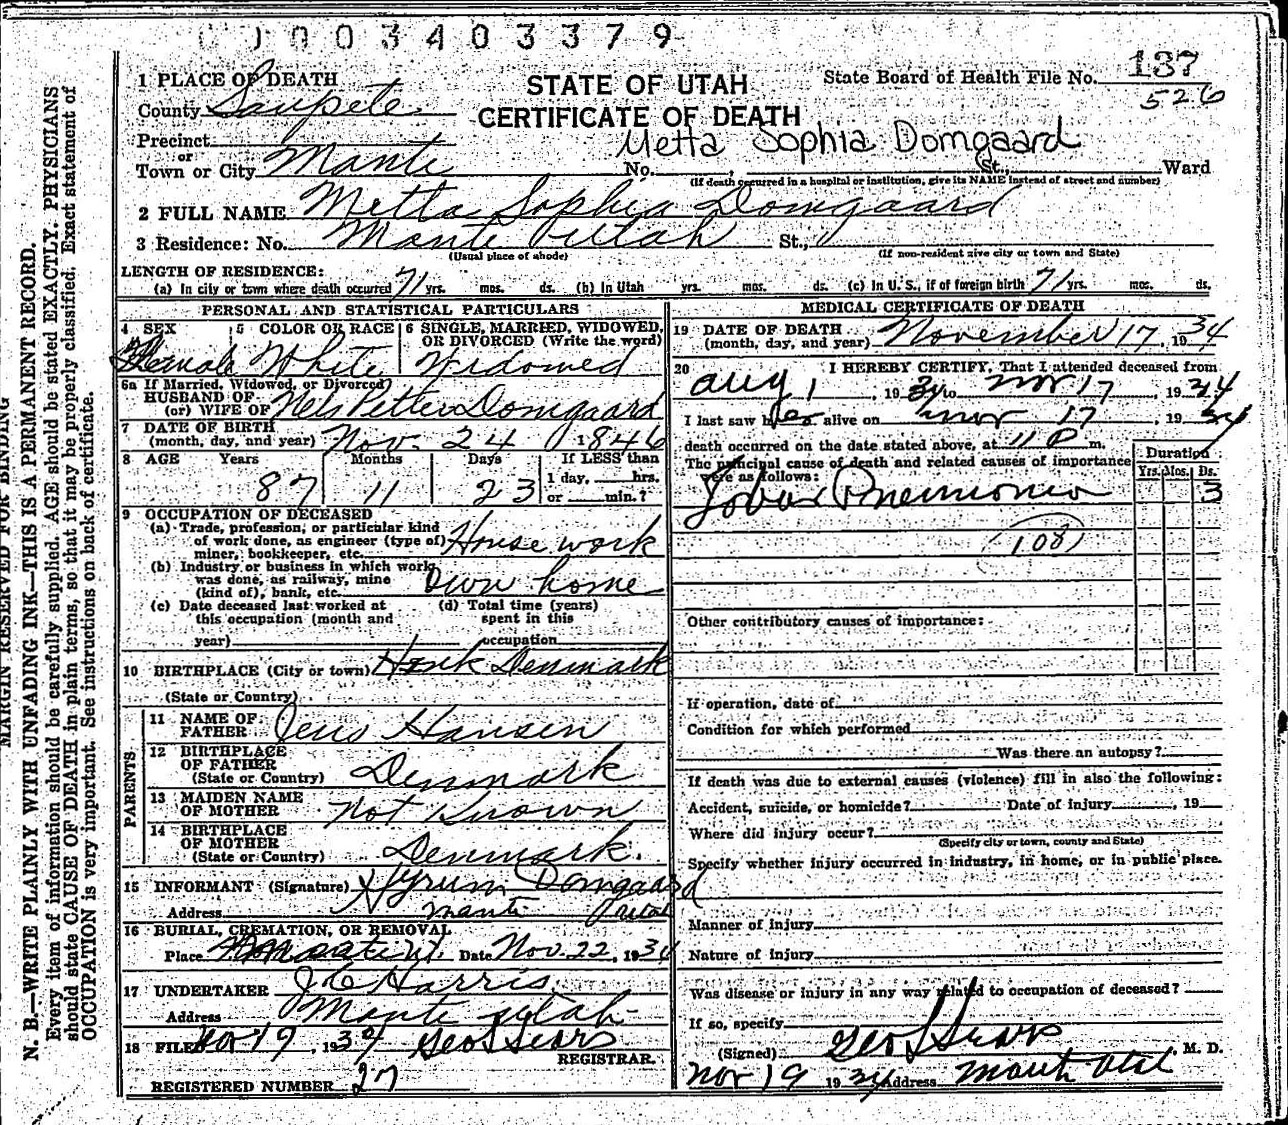 0003403379
1 PLACE OF DEATH
STATE OF UTAH
CERTIFICATE OF DEATH
State Board of Health File No. 137
526
County Sanpete
Precinct
or
Town or City Manti No. , St., Ward
Metta Sophia Domgaard
(If death occurred in a hospital or institution, give its NAME instead of street and number)
2 FULL NAME Metta Sophia Domgaard
3 Residence: No. Manti Utah St.,
(Usual place of abode) (If non-resident give city or town and State)
LENGTH OF RESIDENCE:
(a) In city or town where death occurred 71 yrs. mos. ds. (b) In Utah yrs. mos. ds. (c) In U. S., if of foreign birth 71 yrs. mos. ds.
PERSONAL AND STATISTICAL PARTICULARS
4 SEX 5 COLOR OR RACE 6 SINGLE, MARRIED, WIDOWED, OR DIVORCED (Write the word)
Female White Widowed
6a If Married, Widowed, or Divorced
HUSBAND OF
(or) WIFE OF Nels Petter Domgaard
7 DATE OF BIRTH
(month, day, and year) Nov. 24 1846
8 AGE Years Months Days If LESS than
1 day, hrs.
87 11 23 or min.?
9 OCCUPATION OF DECEASED
(a) Trade, profession, or particular kind
of work done, as engineer (type of)
miner, bookkeeper, etc. House work
(b) Industry or business in which work
was done, as railway, mine
(kind of), bank, etc. Own home
(c) Date deceased last worked at
this occupation (month and
year)
(d) Total time (years)
spent in this
occupation
10 BIRTHPLACE (City or town) Denmark
(State or Country)
PARENTS
11 NAME OF
FATHER Jens Hansen
12 BIRTHPLACE
OF FATHER
(State or Country) Denmark
13 MAIDEN NAME
OF MOTHER Not Known
14 BIRTHPLACE
OF MOTHER
(State or Country) Denmark.
15 INFORMANT (Signature) Hyrum Domgaard
Address Manti Utah
16 BURIAL, CREMATION, OR REMOVAL
Place Manti Ut. Date Nov. 22, 1934
17 UNDERTAKER J C Harris
Address Manti Utah
18 FILED Nov 19, 1934 Geo L Sears
REGISTRAR.
REGISTERED NUMBER 27
MEDICAL CERTIFICATE OF DEATH
19 DATE OF DEATH
(month, day, and year) November 17, 1934
20 I HEREBY CERTIFY, That I attended deceased from
Aug 1, 1934 to Nov 17, 1934
I last saw her alive on Nov 17, 1934
death occurred on the date stated above, at 11 P m.
The principal cause of death and related causes of importance
were as follows:
Duration
Yrs. Mos. Ds.
Lobar Pneumonia 3
108
Other contributory causes of importance:
If operation, date of
Condition for which performed
Was there an autopsy?
If death was due to external causes (violence) fill in also the following:
Accident, suicide, or homicide? Date of injury , 19
Where did injury occur?
(Specify city or town, county and State)
Specify whether injury occurred in industry, in home, or in public place.
Manner of injury
Nature of injury
Was disease or injury in any way related to occupation of deceased?
If so, specify
(Signed) Geo L Sears, M. D.
Nov 19 1934 Address Manti Utah
MARGIN RESERVED FOR BINDING
N. B.—WRITE PLAINLY WITH UNFADING INK—THIS IS A PERMANENT RECORD.
Every item of information should be carefully supplied. AGE should be stated EXACTLY. PHYSICIANS
should state CAUSE OF DEATH in plain terms, so that it may be properly classified. Exact statement of
OCCUPATION is very important. See instructions on back of certificate.